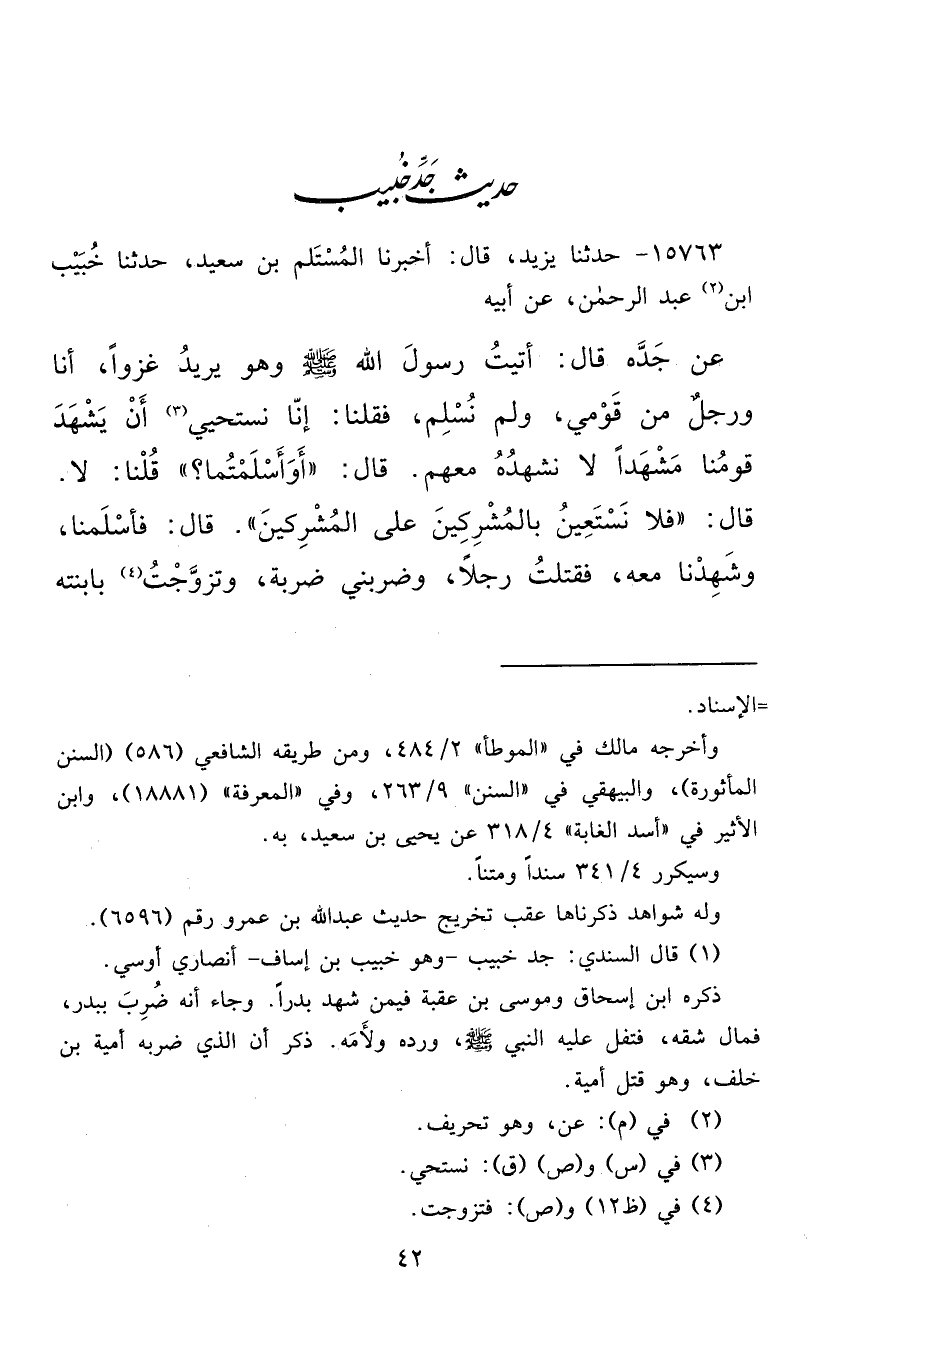 حديث جَدِّ خُبيب
١٥٧٦٣- حدثنا يزيد، قال: أخبرنا المُسْتَلم بن سعيد، حدثنا خُبَيْب
ابن(٢) عبد الرحمٰن، عن أبيه
عن جَدَّه قال: أتيتُ رسولَ الله ﷺ وهو يريدُ غزواً، أنا
ورجلٌ من قَوْمي، ولم نُسْلِم، فقلنا: إنّا نستحيي(٣) أَنْ يَشْهَدَ
قومُنا مَشْهَداً لا نشهدُهُ معهم. قال: «أَوَأَسْلَمْتُما؟» قُلْنا: لا.
قال: «فلا نَسْتَعِينُ بالمُشْرِكِينَ على المُشْرِكينَ». قال: فأسْلَمنا،
وشَهِدْنا معه، فقتلتُ رجلاً، وضربني ضربة، وتزوَّجْتُ(٤) بابنته
=الإسناد.
وأخرجه مالك في «الموطأ» ٤٨٤/٢، ومن طريقه الشافعي (٥٨٦) (السنن
المأثورة)، والبيهقي في «السنن» ٢٦٣/٩، وفي «المعرفة» (١٨٨٨١)، وابن
الأثير في «أسد الغابة» ٣١٨/٤ عن يحيى بن سعيد، به.
وسيكرر ٣٤١/٤ سنداً ومتناً.
وله شواهد ذكرناها عقب تخريج حديث عبدالله بن عمرو رقم (٦٥٩٦).
(١) قال السندي: جد خبيب -وهو خبيب بن إساف- أنصاري أوسي.
ذكره ابن إسحاق وموسى بن عقبة فيمن شهد بدراً. وجاء أنه ضُرِبَ ببدر،
فمال شقه، فتفل عليه النبي ﷺ، ورده ولأَمَه. ذكر أن الذي ضربه أمية بن
خلف، وهو قتل أمية.
(٢) في (م): عن، وهو تحريف.
(٣) في (س) و(ص) (ق): نستحي.
(٤) في (ظ١٢) و(ص): فتزوجت.
٤٢